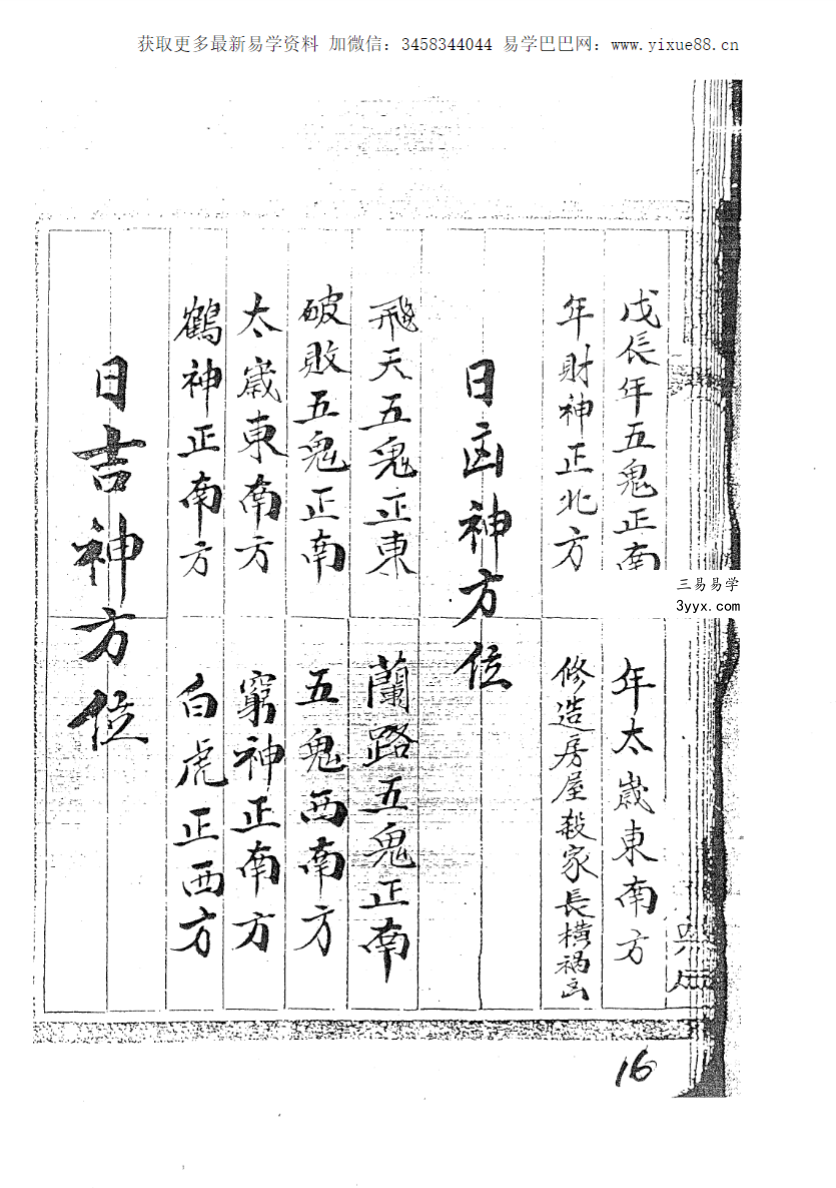 获取更多最新易学资料 加微信：3458344044 易学巴巴网：www.yixue88.cn
戊辰年五鬼正南
年太歲東南方
年財神正北方
修造房屋殺家長橫禍凶
日凶神方位
飛天五鬼正東
蘭路五鬼正南
破敗五鬼正南
五鬼西南方
太歲東南方
窮神正南方
鶴神正南方
白虎正西方
日吉神方位
三易易学
3yyx.com
16